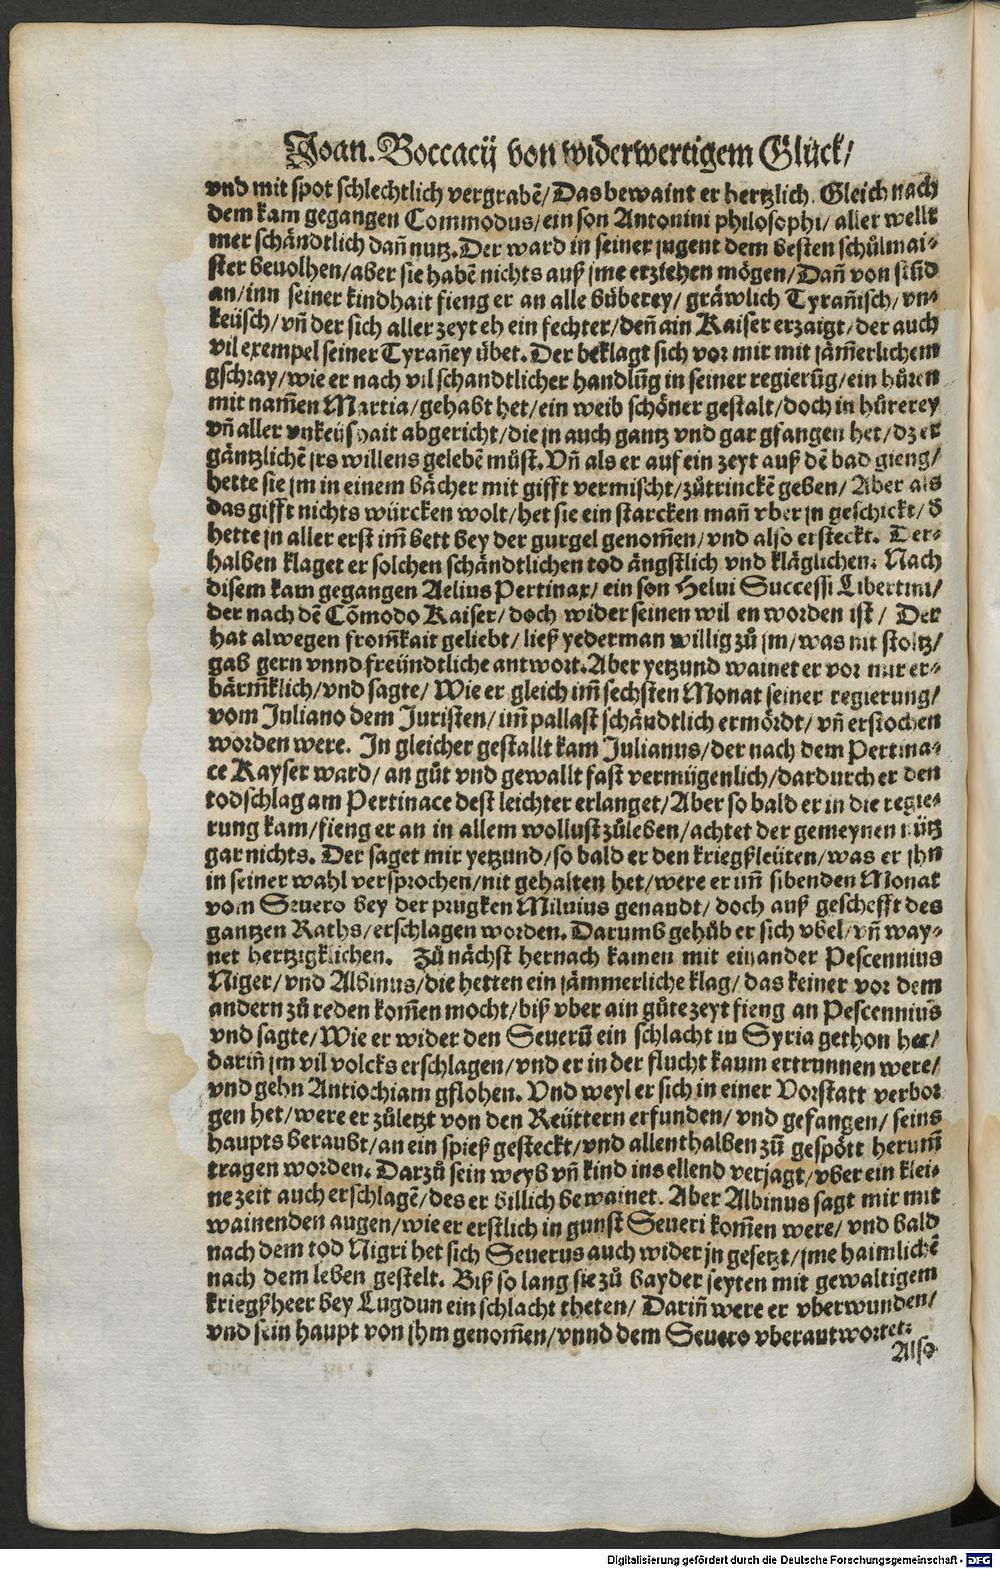 Joan. Boccacij von widerwertigem Glück/
vnd mit spot schlechtlich vergrabẽ/ Das bewaint er hertzlich. Gleich nach
dem kam gegangen Commodus/ ein son Antonini philosophi/ aller welt
mer schändtlich dañ nutz. Der ward in seiner jugent dem besten schůlmai-
ster beuolhen/ aber sie habẽ nichts auß jme erziehen mögen/ Dañ von stũd
an/ inn seiner kindhait fieng er an alle bůberey/ gräwlich Tyrañisch/ vn-
keüsch/ vñ der sich aller zeyt eh ein fechter/ deñ ain Kaiser erzaigt/ der auch
vil exempel seiner Tyrañey übet. Der beklagt sich vor mir mit jäm̃erlichem
gschray/ wie er nach vil schandtlicher handlũg in seiner regierũg/ ein hůren
mit nam̃en Martia/ gehabt het/ ein weib schöner gestalt/ doch in hůrerey
vñ aller vnkeüschait abgericht/ die jn auch gantz vnd gar gfangen het/ dz er
gäntzlichẽ jrs willens gelebẽ můst. Vñ als er auf ein zeyt auß dẽ bad gieng/
hette sie jm in einem bächer mit gifft vermischt/ zůtrinckẽ geben/ Aber als
das gifft nichts würcken wolt/ het sie ein starcken mañ vber jn geschickt/ d̃
hette jn aller erst im̃ bett bey der gurgel genom̃en/ vnd also ersteckt. Der-
halben klaget er solchen schändtlichen tod ängstlich vnd kläglichen. Nach
disem kam gegangen Aelius Pertinax/ ein son Helui Successi Libertini/
der nach dẽ Cõmodo Kaiser/ doch wider seinen willen worden ist/ Der
hat alwegen from̃kait geliebt/ ließ yederman willig zů jm/ was nit stoltz/
gab gern vnnd freündtliche antwort. Aber yetzund wainet er vor mir er-
bärm̃klich/ vnd sagte/ Wie er gleich im̃ sechsten Monat seiner regierung/
vom Juliano dem Juristen/ im̃ pallast schändtlich ermördt/ vñ erstochen
worden were. In gleicher gestallt kam Julianus/ der nach dem Pertina-
ce Kayser ward/ an gůt vnd gewallt fast vermügenlich/ dardurch er den
todschlag am Pertinace dest leichter erlanget/ Aber so bald er in die regie-
rung kam/ fieng er an in allem wollust zůleben/ achtet der gemeynen nütz
gar nichts. Der saget mir yetzund/ so bald er den kriegßleüten/ was er jhn
in seiner wahl versprochen/ nit gehalten het/ were er im̃ sibenden Monat
vom Seuero bey der prugken Miluius genandt/ doch auß geschefft des
gantzen Raths/ erschlagen worden. Darumb gehůb er sich vbel/ vñ way-
net hertzigklichen. Zů nächst hernach kamen mit einander Pescennius
Niger/ vnd Albinus/ die hetten ein jämmerliche klag/ das keiner vor dem
andern zů reden kom̃en mocht/ biß vber ain gůte zeyt fieng an Pescennius
vnd sagte/ Wie er wider den Seuerũ ein schlacht in Syria gethon het/
dariñ jm vil volcks erschlagen/ vnd er in der flucht kaum ertrunnen were/
vnd gehn Antiochiam gflohen. Vnd weyl er sich in einer Vorstatt verbor
gen het/ were er zůletzt von den Reüttern erfunden/ vnd gefangen/ seins
haupts beraubt/ an ein spieß gesteckt/ vnd allenthalben zũ gespött herum̃
tragen worden. Darzů sein weyb vñ kind ins ellend verjagt/ vber ein klei-
ne zeit auch erschlagẽ/ des er billich bewainet. Aber Albinus sagt mir mit
wainenden augen/ wie er erstlich in gunst Seueri kom̃en were/ vnd bald
nach dem tod Nigri het sich Seuerus auch wider jn gesetzt/ jme haimlichẽ
nach dem leben gestelt. Biß so lang sie zů bayder seyten mit gewaltigem
kriegßheer bey Lugdun ein schlacht theten/ Dariñ were er vberwunden/
vnd sein haupt von jhm genom̃en/ vnnd dem Seuero vberantwortet.
Also
Digitalisierung gefördert durch die Deutsche Forschungsgemeinschaft - DFG